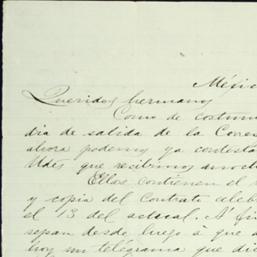 Méxic
Queridos hermanos
Como de costum
dia de salida de la Corre
ahora podemos ya contesta
Udes que recibimos anoche
Ellas contienen el
y copia del Contrato celeb
el 13 del actual. A fi
sepan desde luego á que a
hoy un telégrama que di